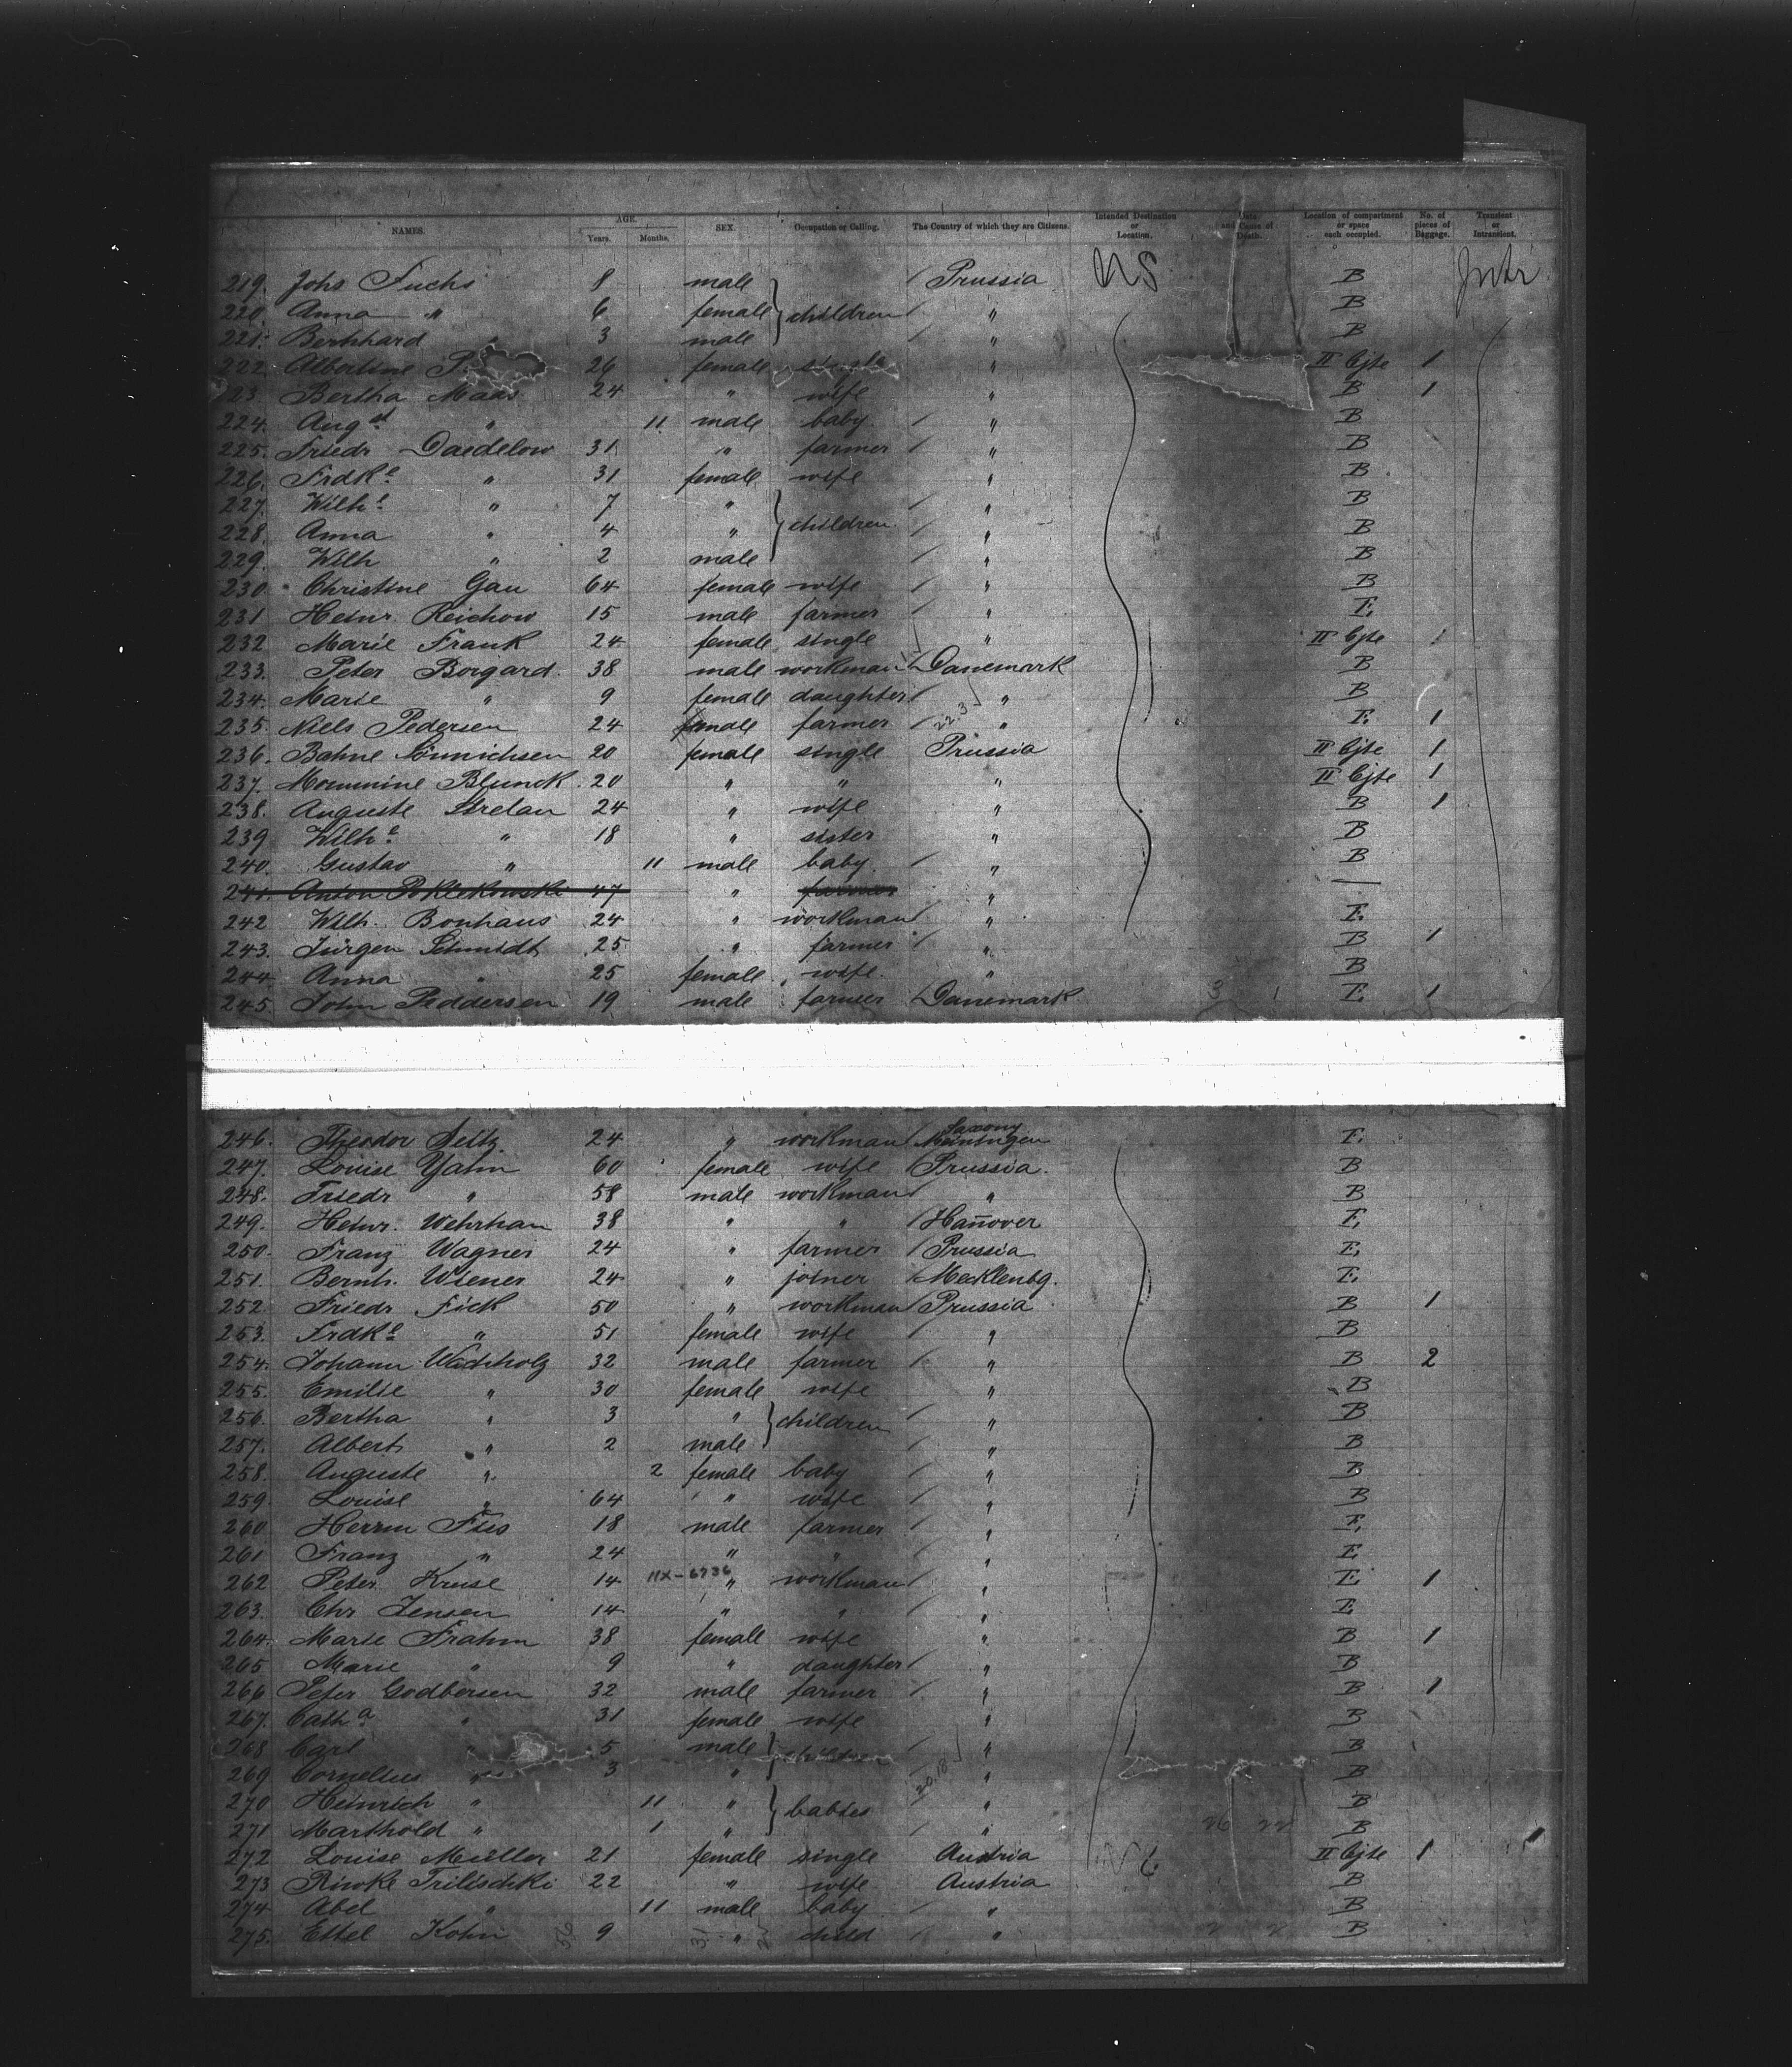 NAMES. AGE. Years. Months. SEX. Occupation or Calling. The Country of which they are Citizens. Intended Destination or Location. Date and Cause of Death. Location of compartment or space each occupied. No. of pieces of Baggage. Transient or Intransient.
219. Johs Fuchs 8 male Prussia US B
220. Anna " 6 female children " B
221. Bernhard 3 male " B
222. Albertine 26 female single " II Cjte 1
223. Bertha Maas 24 " wife " B 1
224. Aug st " 11 male baby " B
225. Friedr Daedelow 31 " farmer " B
226. Frdke " 31 female wife " B
227. Wilhe " 7 " children " B
228. Anna " 4 " " B
229. Wilh " 2 male " B
230. Christine Gau 64 female wife " B
231 Heinr. Reichow 15 male farmer " E
232 Marie Frank 24 female single " II Cjte 1
233. Peter Borgard 38 male workman Danemark B
234. Marie " 9 female daughter " B
235. Niels Pedersen 24 male farmer " E 1
236. Bahne Sönnichsen 20 female single Prussia II Cjte 1
237. Mommine Blunck 20 " " " II Cjte 1
238. Auguste Strelau 24 " wife " B 1
239 Wilhe " 18 " sister " B
240. Gustav " 11 male baby " B
241. Anton Poklekowski 47 " farmer " —
242 Wilh. Bonhaus 24 " workman " E
243. Jürgen Schmidt 25 " farmer " B 1
244 Anna " 25 female wife " B
245. John Peddersen 19 male farmer Danemark E 1
246. Theodor Seitz 24 " workman Saxony Meiningen E
247. Louise Yahn 60 female wife Prussia B
248. Friedr " 58 male workman " B
249. Heinr. Wehrhan 38 " " Hanover E
250. Franz Wagner 24 " farmer Prussia E
251. Bernh. Wiener 24 " joiner Mecklenbg. E
252. Friedr Fick 50 " workman Prussia B 1
253. Frdke " 51 female wife " B
254. Johann Wachholz 32 male farmer " B 2
255. Emilie " 30 female wife " B
256. Bertha " 3 " children " B
257. Albert " 2 male " B
258. Auguste " 2 female baby " B
259. Louise " 64 " wife " B
260 Herrm Fies 18 male farmer " E
261 Franz " 24 " " " E
262 Peter Kruse 14 11X-6736 " workman " E 1
263. Chr Jensen 14 " " " E
264. Marie Frahm 38 female wife " B 1
265 Marie " 9 " daughter " B
266 Peter Godbersen 32 male farmer " B 1
267. Catha " 31 female wife " B
268 Carl " 5 male children " B
269 Cornelius " 3 " " B
270 Heinrich " 11 " babies " B
271 Marthold " 1 " " B
272 Louise Müller 21 female single Austria II Cjte 1
273 Riwke Trilischki 22 " wife Austria B
274 Abel " 11 male baby " B
275. Ettel Kohn 9 " child " B